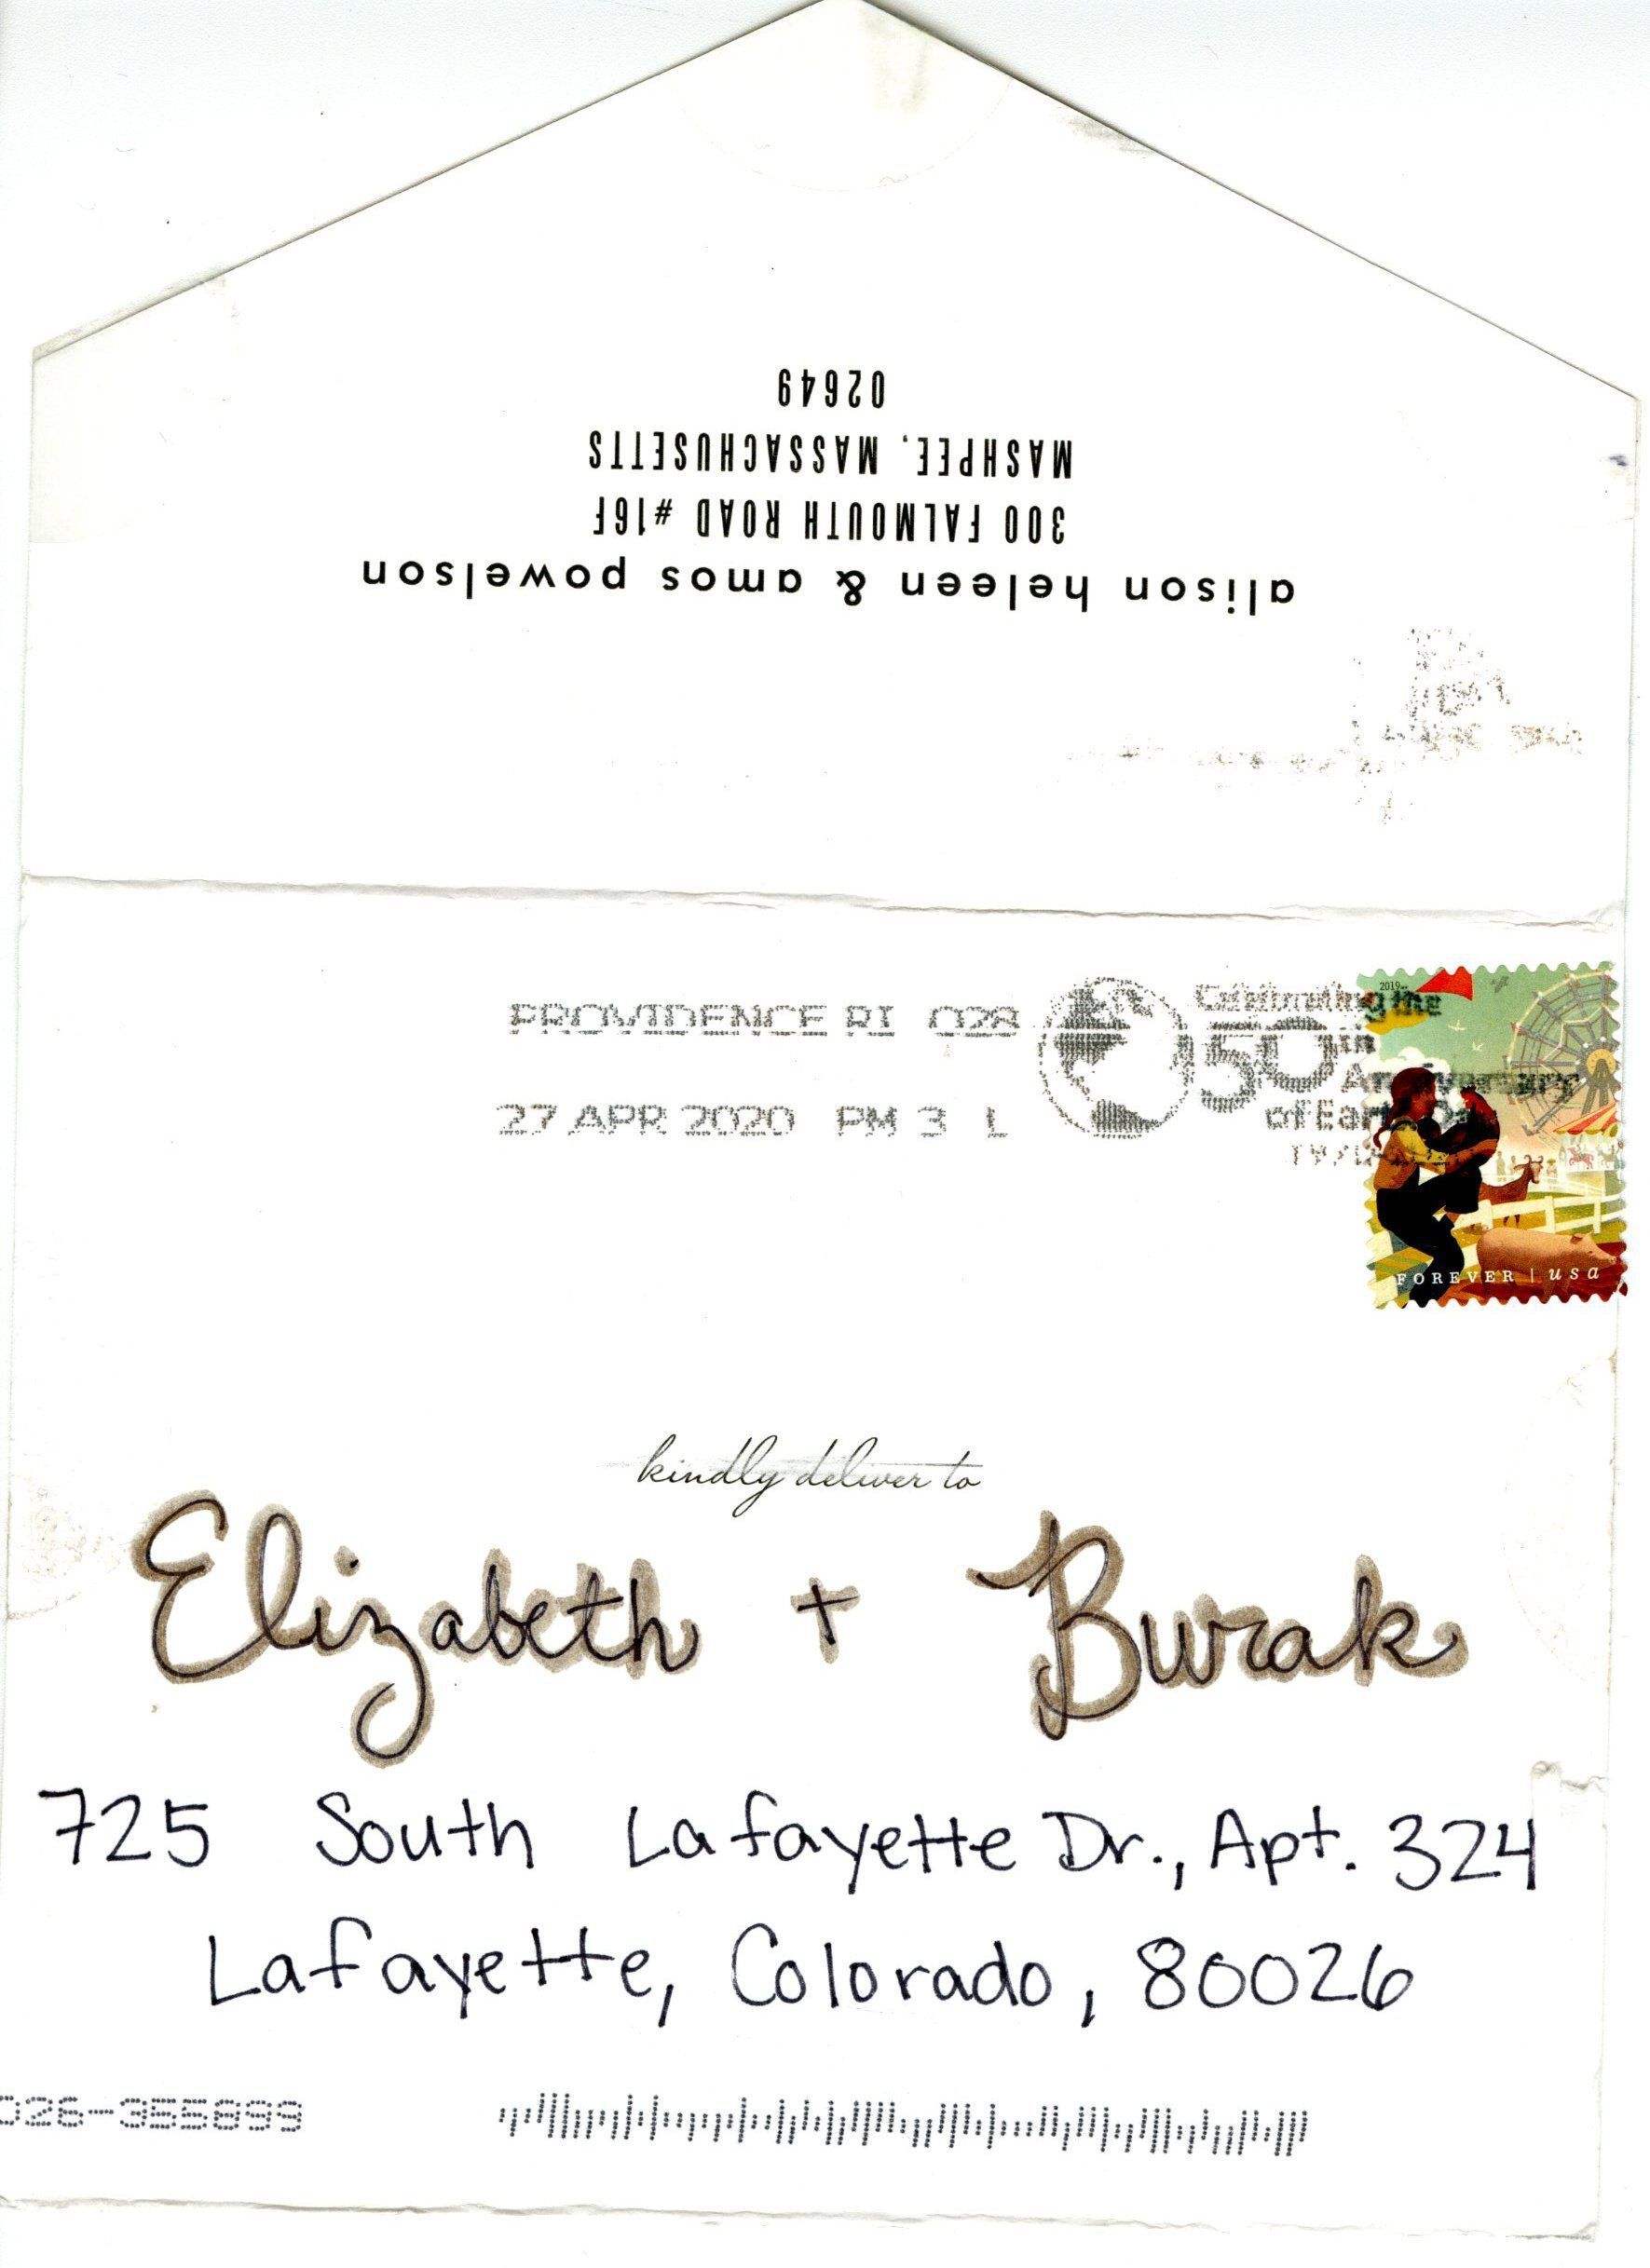 alison heleen & amos powelson
300 FALMOUTH ROAD #16F
MASHPEE, MASSACHUSETTS
02649
PROVIDENCE RI 028
27 APR 2020 PM 3 L
Celebrating the
50th
Anniversary
of Earth Day
2019
FOREVER | usa
kindly deliver to
Elizabeth + Burak
725 South Lafayette Dr., Apt. 324
Lafayette, Colorado, 80026
026-355899